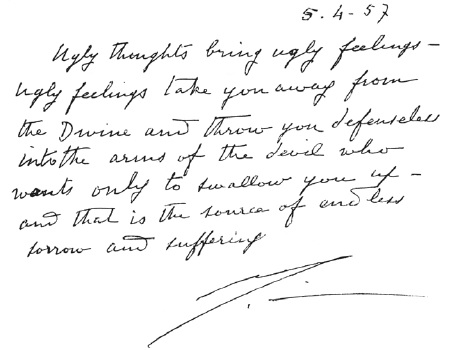 5-4-57
Ugly thoughts bring ugly feelings –
Ugly feelings take you away from
the Divine and throw you defenseless
into the arms of the devil who
wants only to swallow you up –
and that is the source of endless
sorrow and suffering